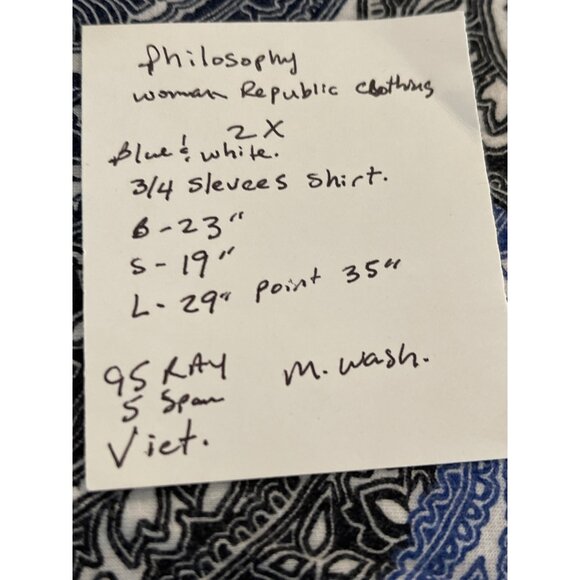 Philosophy
woman Republic clothing
2X
Blue & white.
3/4 Slevees Shirt.
B-23"
S-19"
L-29" Point 35"
95 RAY M. wash.
5 Span
Viet.